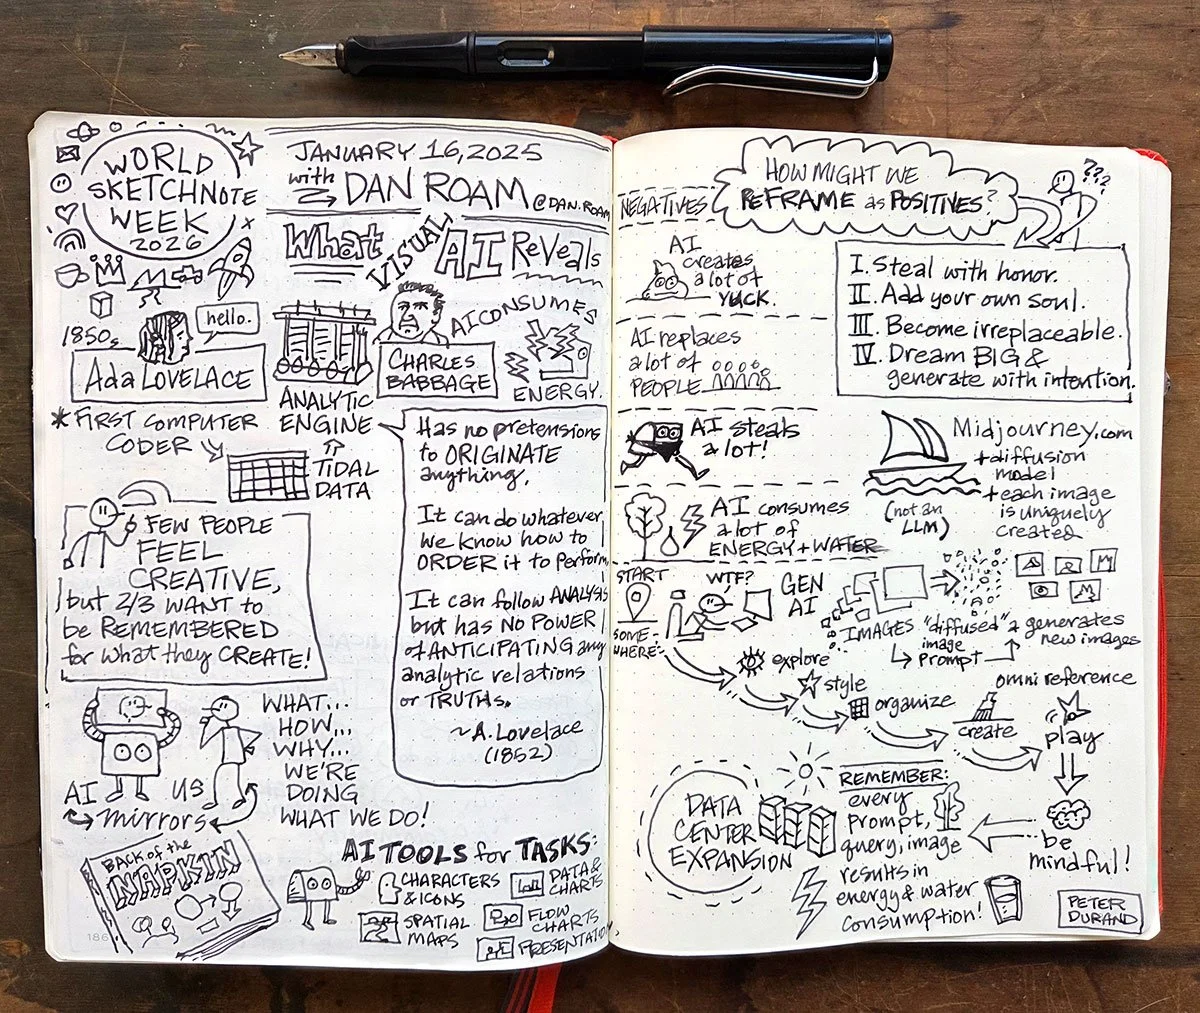 WORLD
SKETCHNOTE
WEEK
2026
JANUARY 16, 2025
with DAN ROAM @DAN.ROAM
What VISUAL AI REVEALS
1850s
hello.
Ada LOVELACE
* FIRST COMPUTER
CODER
ANALYTIC
ENGINE
TIDAL
DATA
CHARLES
BABBAGE
AI CONSUMES
ENERGY
Has no pretensions
to ORIGINATE
anything.
It can do whatever
we know how to
ORDER it to perform
It can follow ANALYSIS
but has NO POWER
of ANTICIPATING any
analytic relations
or TRUTHS.
~A. Lovelace
(1852)
FEW PEOPLE
FEEL
CREATIVE,
but 2/3 WANT to
be REMEMBERED
for what they CREATE!
AI US
mirrors
WHAT...
HOW...
WHY...
WE'RE
DOING
WHAT WE DO!
BACK of the
NAPKIN
AI TOOLS for TASKS:
CHARACTERS
& ICONS
SPATIAL
MAPS
DATA &
CHARTS
FLOW
CHARTS
PRESENTATION
186
NEGATIVES
HOW MIGHT WE
REFRAME as POSITIVES?
???
AI
creates
a lot of
YUCK.
AI replaces
a lot of
PEOPLE
AI steals
a lot!
AI consumes
a lot of
ENERGY + WATER
I. Steal with honor.
II. Add your own soul.
III. Become irreplaceable.
IV. Dream BIG &
generate with intention.
Midjourney.com
+ diffusion
model
+ each image
is uniquely
created
(not an
LLM)
START
SOME-
WHERE
WTF?
GEN
AI
IMAGES "diffused" & generates
image new images
prompt
explore
style
organize
create
omni reference
play
be
mindful!
DATA
CENTER
EXPANSION
REMEMBER:
every
prompt,
query, image
results in
energy & water
consumption!
PETER
DURAND